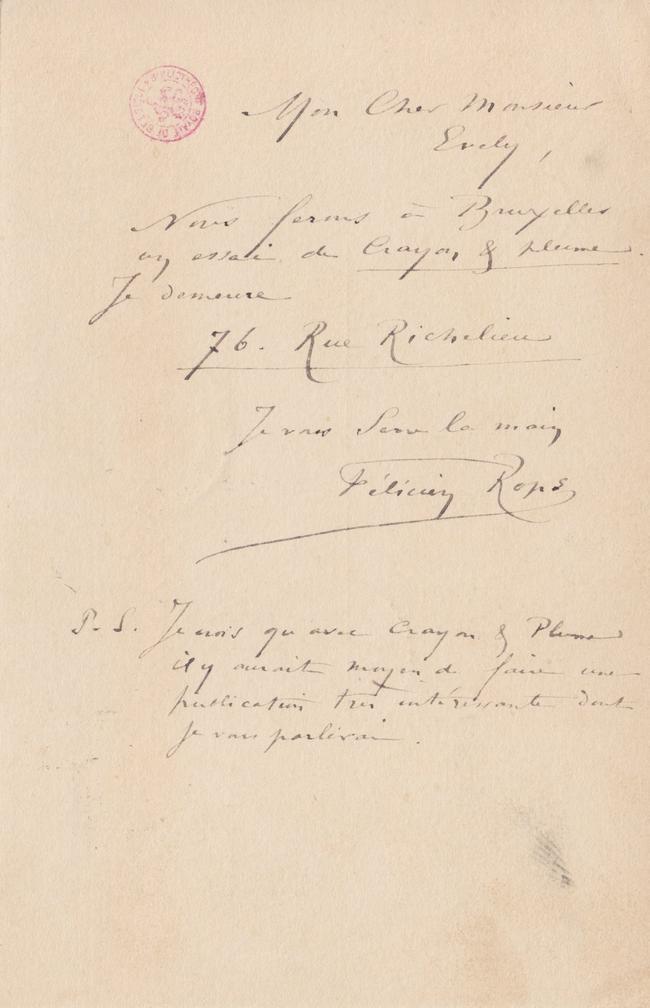 Mon Cher Monsieur
Evely,
Nous ferons à Bruxelles
un essai de Crayon & plume.
Je demeure
76. Rue Richelieu
Je vous serre la main
Félicien Rops
P.S. Je crois qu avec Crayon & Plume
il y aurait moyen de faire une
publication très intéressante dont
je vous parlerai.